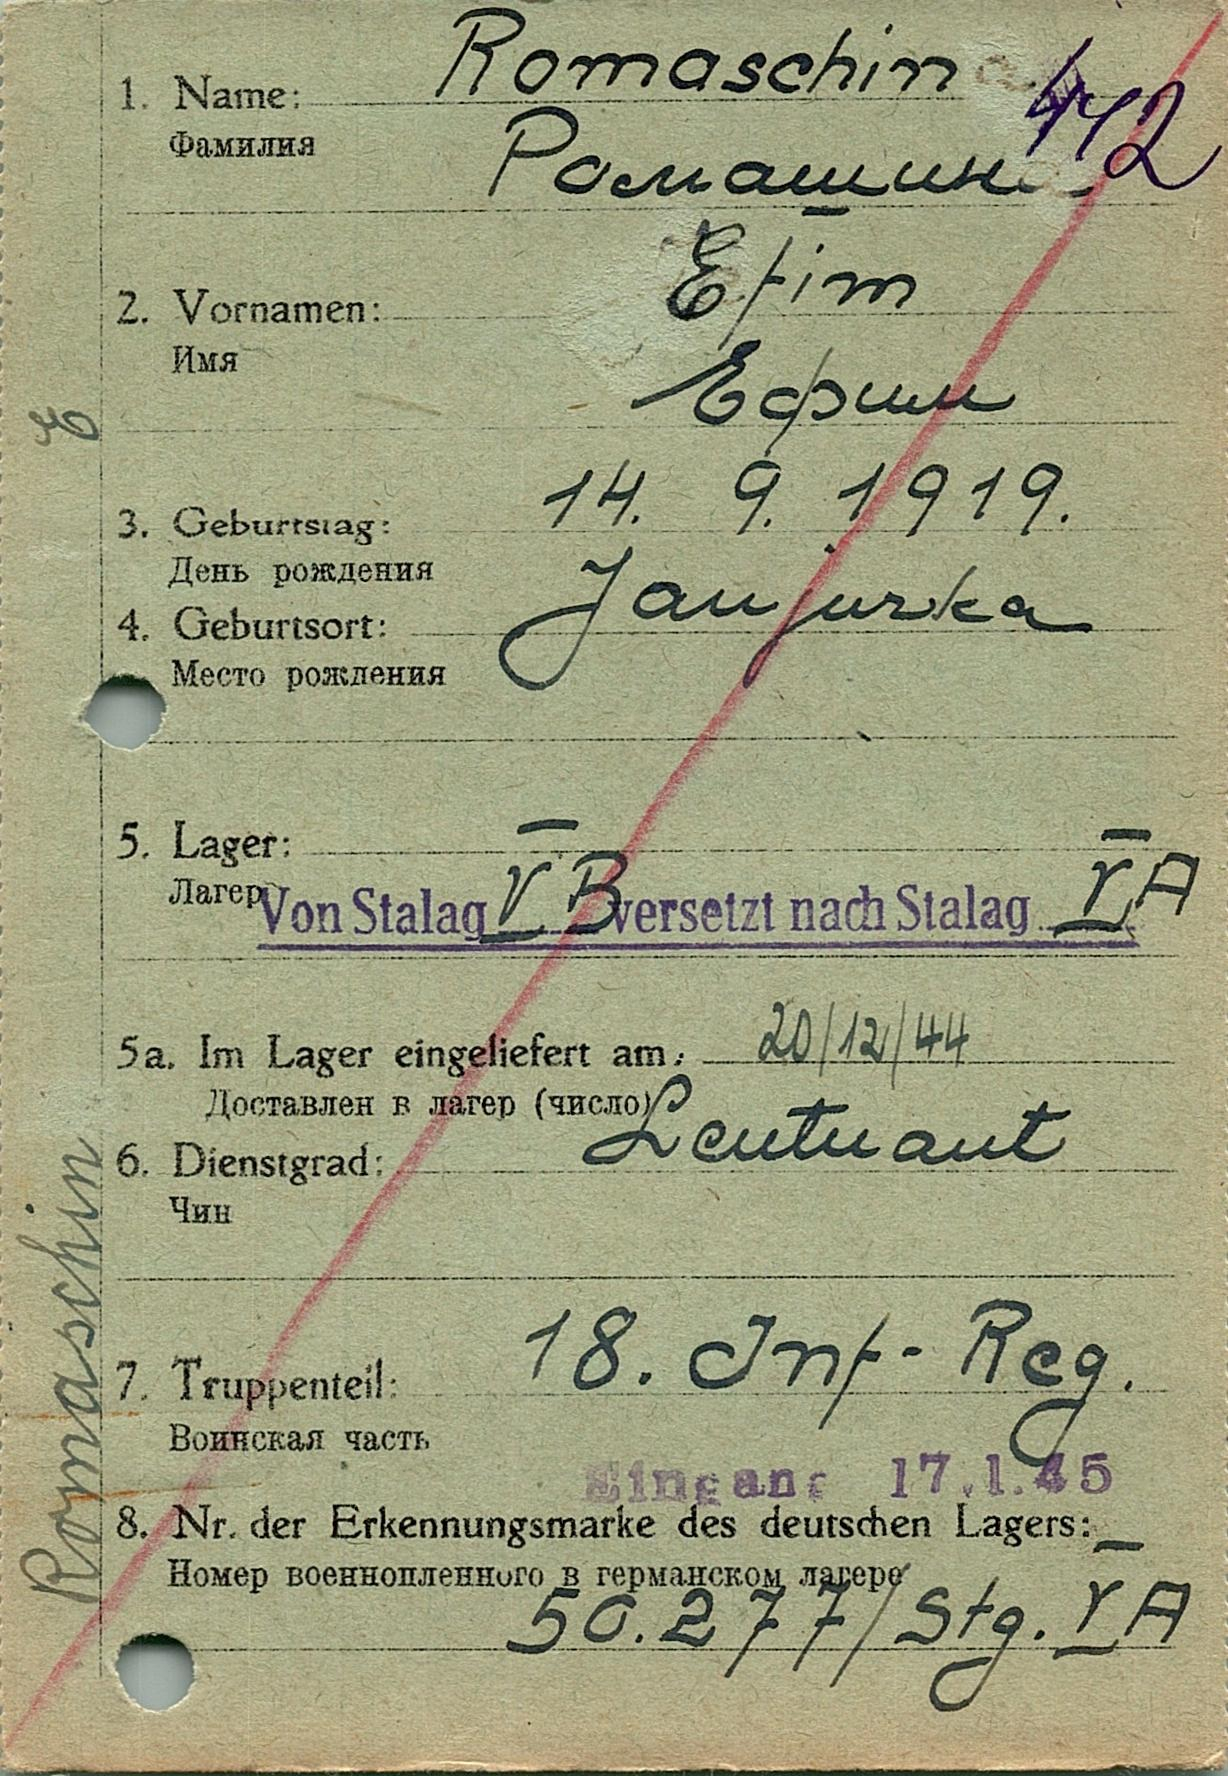 Romaschin
442
1. Name:
Фамилия
Ромашин
Efim
2. Vornamen:
Имя
Ефим
E
14. 9. 1919.
3. Geburtstag:
День рождения
Janjurka
4. Geburtsort:
Место рождения
5. Lager:
Лагер
Von Stalag V B versetzt nach Stalag V A
5a. Im Lager eingeliefert am: 20/12/44
Доставлен в лагер (число)
6. Dienstgrad: Leutnant
Чин
18. Inf-Reg.
7. Truppenteil:
Воинская часть
Eingang 17.1.45
8. Nr. der Erkennungsmarke des deutschen Lagers:
Номер военнопленного в германском лагере
50.277/Stg. V A
Romaschin